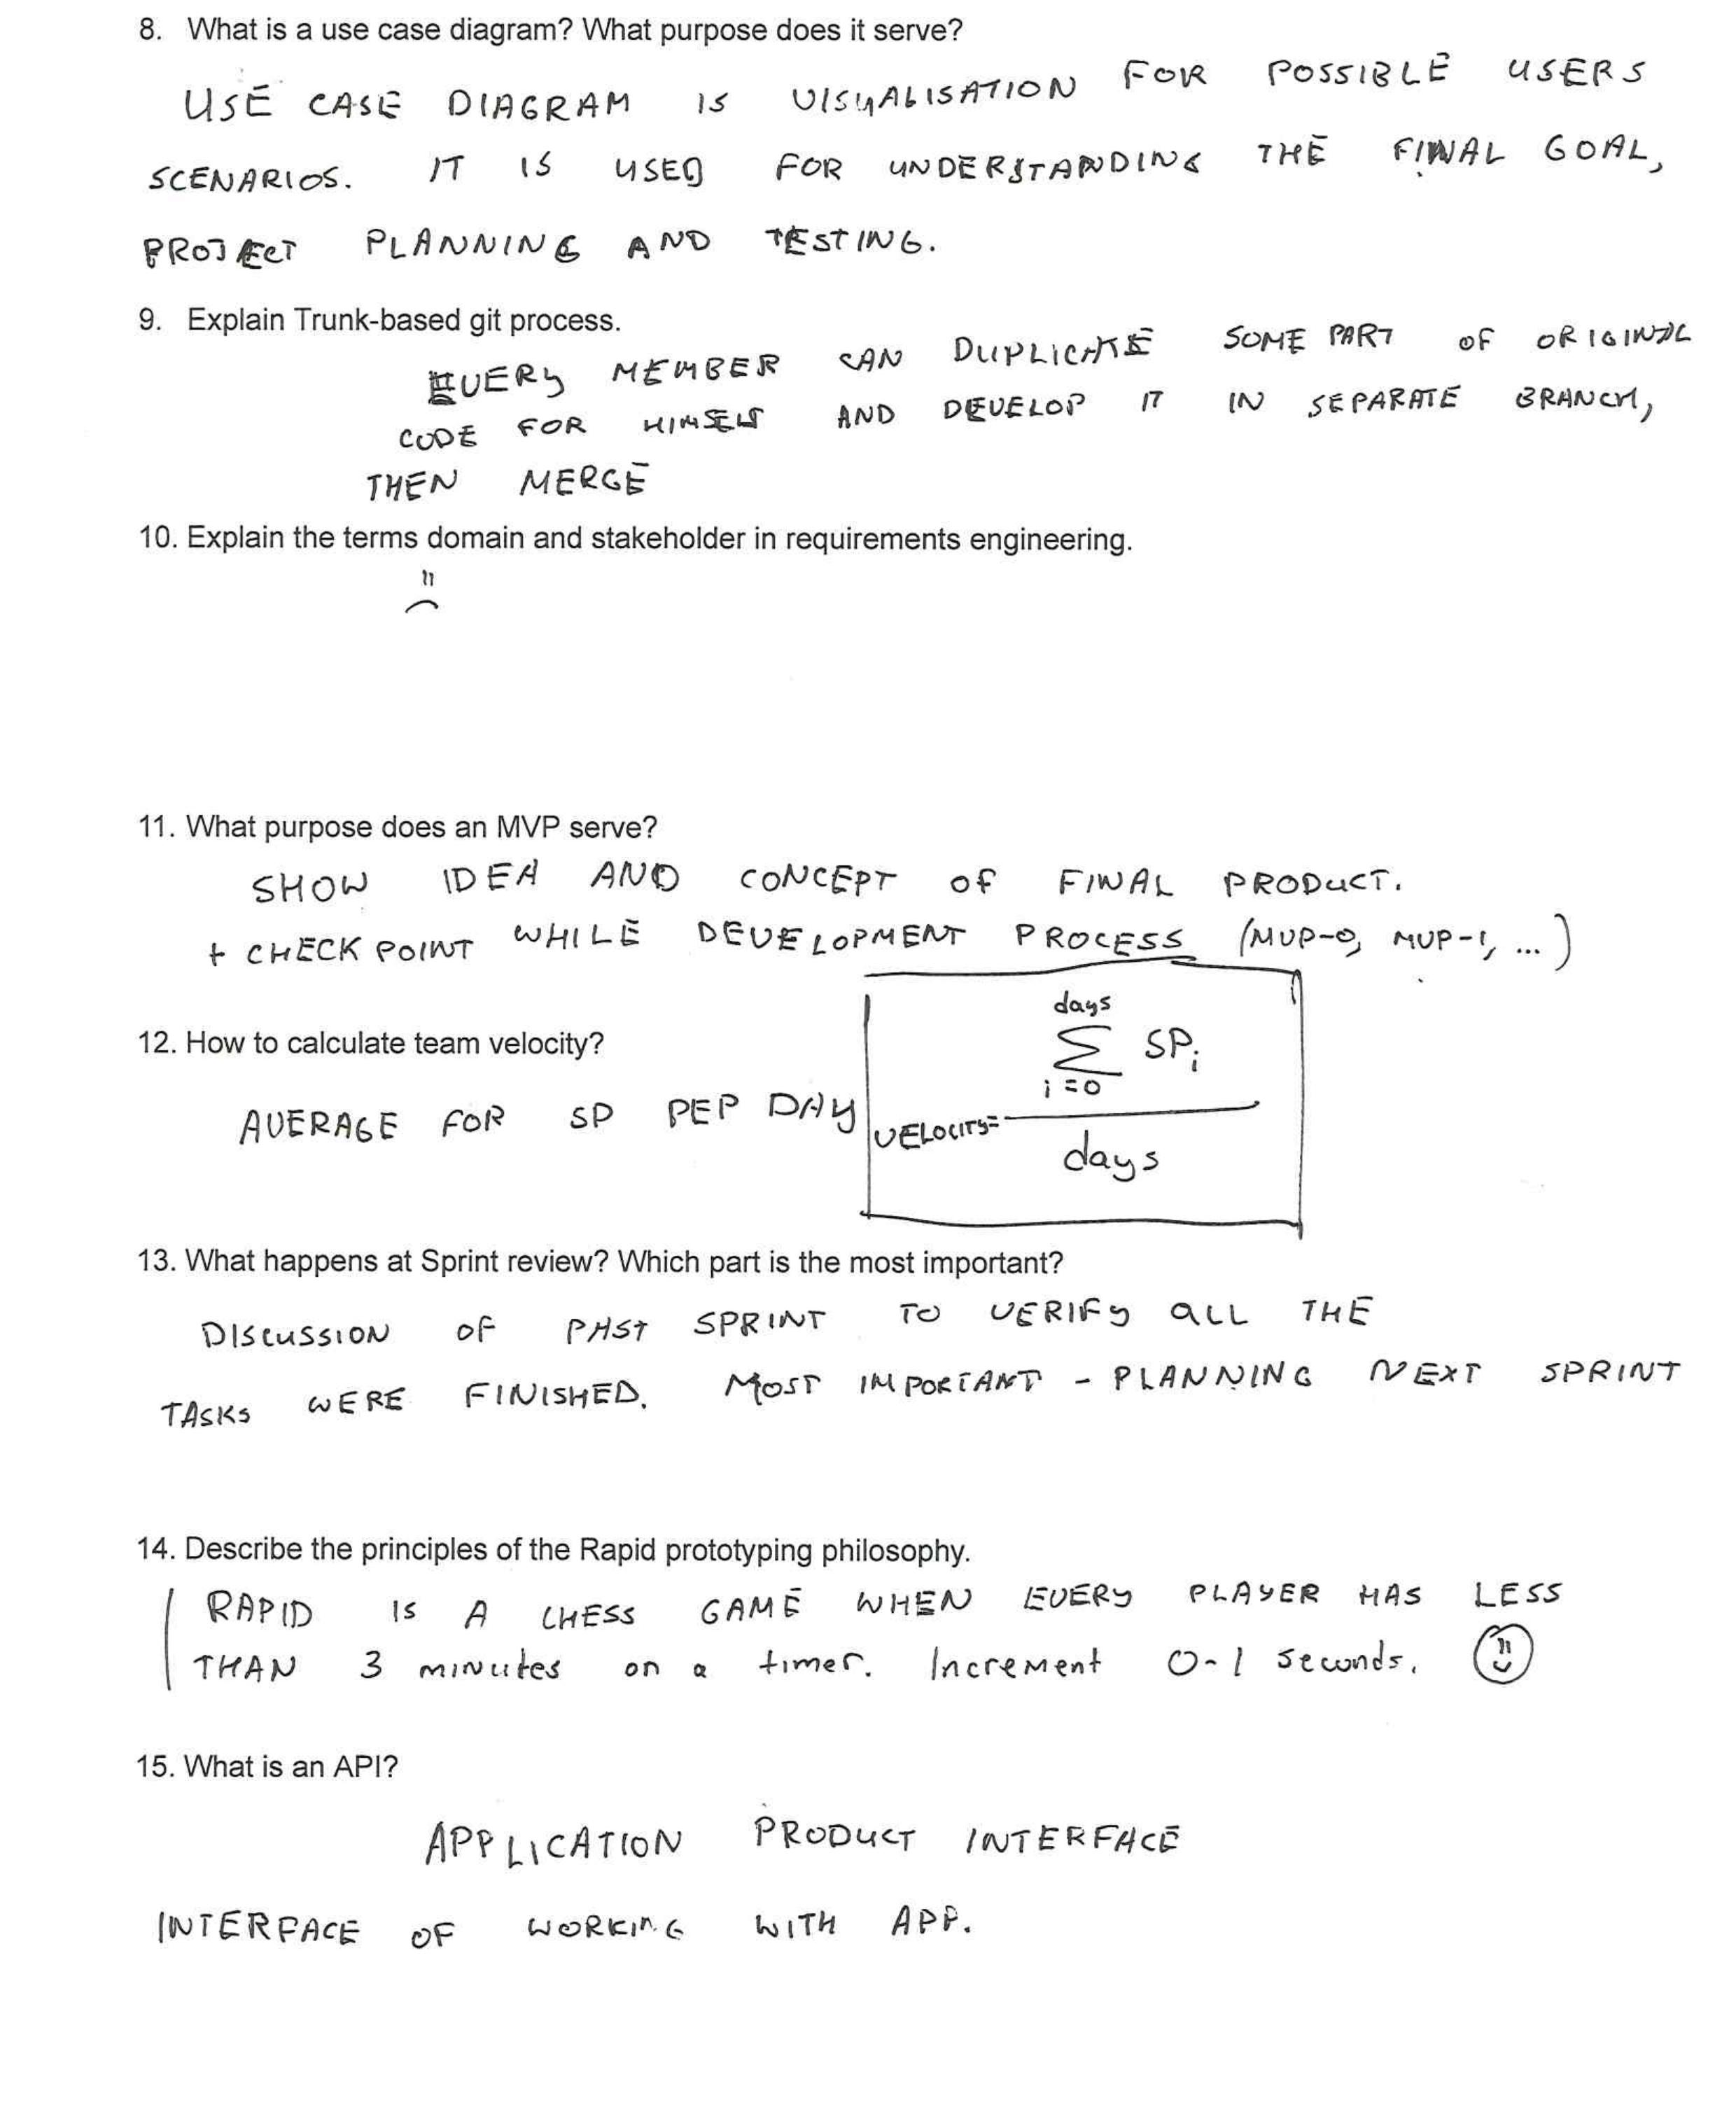 8. What is a use case diagram? What purpose does it serve?
USE CASE DIAGRAM IS VISUALISATION FOR POSSIBLE USERS
SCENARIOS. IT IS USED FOR UNDERSTANDING THE FINAL GOAL,
PROJECT PLANNING AND TESTING.
9. Explain Trunk-based git process.
EVERY MEMBER CAN DUPLICATE SOME PART OF ORIGINAL
CODE FOR HIMSELF AND DEVELOP IT IN SEPARATE BRANCH,
THEN MERGE
10. Explain the terms domain and stakeholder in requirements engineering.
11. What purpose does an MVP serve?
SHOW IDEA AND CONCEPT OF FINAL PRODUCT.
+ CHECK POINT WHILE DEVELOPMENT PROCESS (MVP-0, MVP-1, ...)
12. How to calculate team velocity?
AVERAGE FOR SP PEP DAY
days
Σ SPi
i=0
VELOCITY=
days
13. What happens at Sprint review? Which part is the most important?
DISCUSSION OF PAST SPRINT TO VERIFY ALL THE
TASKS WERE FINISHED. MOST IMPORTANT - PLANNING NEXT SPRINT
14. Describe the principles of the Rapid prototyping philosophy.
RAPID IS A CHESS GAME WHEN EVERY PLAYER HAS LESS
THAN 3 minutes on a timer. Increment 0-1 seconds.
15. What is an API?
APPLICATION PRODUCT INTERFACE
INTERFACE OF WORKING WITH APP.